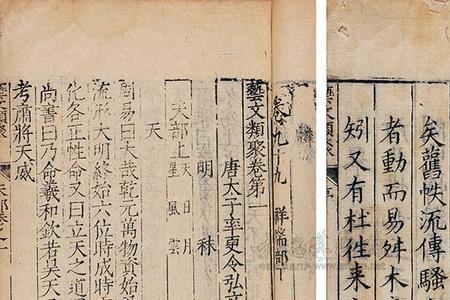 矣舊帙流傳騷
者動而易舛木
矧又有杜徃來
藝文類聚
卷九十九 祥瑞部
藝文類聚卷第
唐太子率更令弘
明 秣
天部上 天 日 月 星 風 雲
天
周易曰大哉乾元萬物資始
流形大明終始六位時成時
化各正性命又曰立天之道
尚書曰乃命羲和欽若昊天
考肅將天威
藝文類聚 天部卷之一